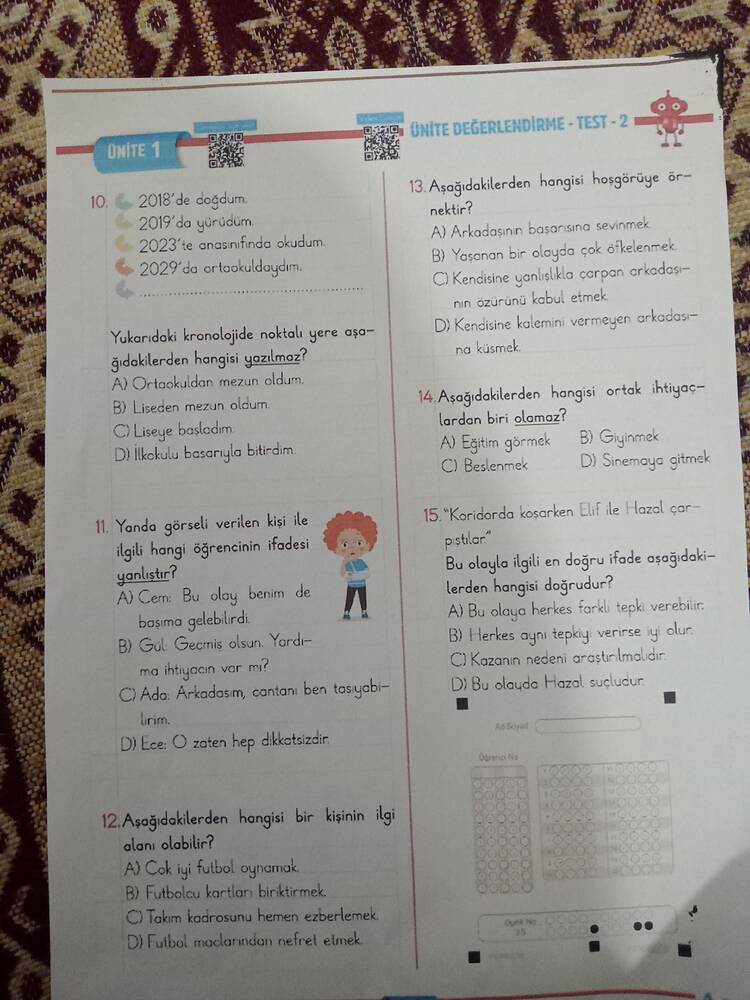 ÜNİTE 1
ÜNİTE DEĞERLENDİRME - TEST - 2
10. 2018'de doğdum.
2019'da yürüdüm.
2023'te anasınıfında okudum.
2029'da ortaokuldaydım.
Yukarıdaki kronolojide noktalı yere aşa-
ğıdakilerden hangisi yazılmaz?
A) Ortaokuldan mezun oldum.
B) Liseden mezun oldum.
C) Liseye başladım.
D) İlkokulu başarıyla bitirdim.
11. Yanda görseli verilen kişi ile
ilgili hangi öğrencinin ifadesi
yanlıştır?
A) Cem: Bu olay benim de
başıma gelebilirdi.
B) Gül: Geçmiş olsun. Yardı-
ma ihtiyacın var mı?
C) Ada: Arkadaşım, çantanı ben taşıyabi-
lirim.
D) Ece: O zaten hep dikkatsizdir.
12. Aşağıdakilerden hangisi bir kişinin ilgi
alanı olabilir?
A) Çok iyi futbol oynamak.
B) Futbolcu kartları biriktirmek.
C) Takım kadrosunu hemen ezberlemek.
D) Futbol maçlarından nefret etmek.
13. Aşağıdakilerden hangisi hoşgörüye ör-
nektir?
A) Arkadaşının başarısına sevinmek.
B) Yaşanan bir olayda çok öfkelenmek.
C) Kendisine yanlışlıkla çarpan arkadaşı-
nın özürünü kabul etmek.
D) Kendisine kalemini vermeyen arkadaşı-
na küsmek.
14. Aşağıdakilerden hangisi ortak ihtiyaç-
lardan biri olamaz?
A) Eğitim görmek B) Giyinmek
C) Beslenmek D) Sinemaya gitmek
15. "Koridorda koşarken Elif ile Hazal çar-
pıştılar."
Bu olayla ilgili en doğru ifade aşağıdaki-
lerden hangisi doğrudur?
A) Bu olaya herkes farklı tepki verebilir.
B) Herkes aynı tepkiyi verirse iyi olur.
C) Kazanın nedeni araştırılmalıdır.
D) Bu olayda Hazal suçludur.
Ad Soyad
Öğrenci No
Optik No